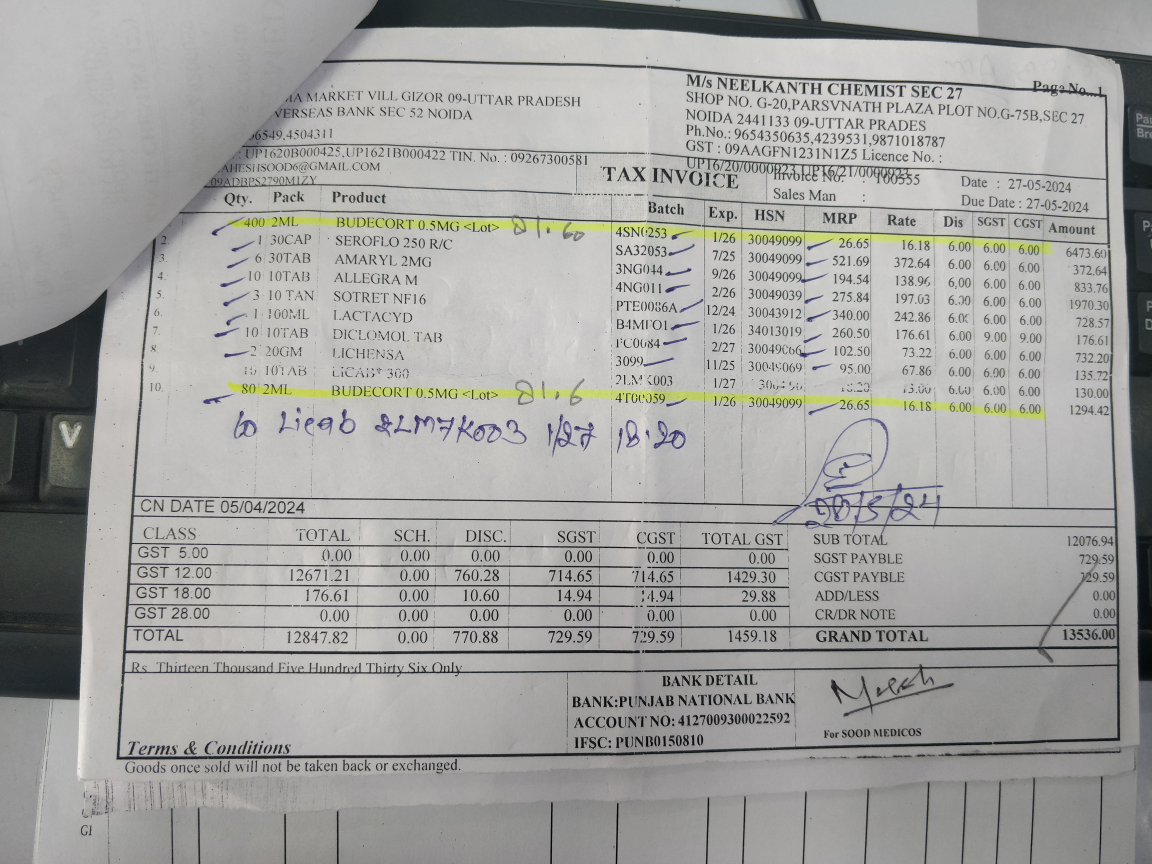 Page No...1
MA MARKET VILL GIZOR 09-UTTAR PRADESH
VERSEAS BANK SEC 52 NOIDA
06549,4504311
: UP1620B000425,UP1621B000422 TIN. No. : 09267300581
AHESHSOOD6@GMAIL.COM
09ADBPS2790M1ZY
M/s NEELKANTH CHEMIST SEC 27
SHOP NO. G-20,PARSVNATH PLAZA PLOT NO.G-75B,SEC 27
NOIDA 2441133 09-UTTAR PRADES
Ph.No.: 9654350635,4239531,9871018787
GST : 09AAGFN1231N1Z5 Licence No. :
UP16/20/0000923,UP16/21/0000923
TAX INVOICE
Invoice No. : T00555
Sales Man :
Date : 27-05-2024
Due Date : 27-05-2024
Qty. Pack Product Batch Exp. HSN MRP Rate Dis SGST CGST Amount
400 2ML BUDECORT 0.5MG <Lot> 81.60 1/26 30049099 26.65 16.18 6.00 6.00 6.00 6473.60
2. 1 30CAP SEROFLO 250 R/C SA32053 7/25 30049099 521.69 372.64 6.00 6.00 6.00 372.64
3. 6 30TAB AMARYL 2MG 3NG044 9/26 30049099 194.54 138.96 6.00 6.00 6.00 833.76
4. 10 10TAB ALLEGRA M 4NG011 2/26 30049039 275.84 197.03 6.00 6.00 6.00 1970.30
5. 3 10 TAN SOTRET NF16 PTE0086A 12/24 30043912 340.00 242.86 6.00 6.00 6.00 728.57
6. 1 100ML LACTACYD 1/26 34013019 260.50 176.61 6.00 9.00 9.00 176.61
7. 10 10TAB DICLOMOL TAB PC0084 2/27 30049066 102.50 73.22 6.00 6.00 6.00 732.20
8. 2 20GM LICHENSA 3099 11/25 30049069 95.00 67.86 6.00 6.00 6.00 135.72
9. 10TAB 1/27 6.00 6.00 6.00 130.00
10. 80 2ML BUDECORT 0.5MG <Lot> 81.6 1/26 30049099 26.65 16.18 6.00 6.00 6.00 1294.42
Licab 2LM7K003 1/27 18.20
28/5/24
CN DATE 05/04/2024
CLASS TOTAL SCH. DISC. SGST CGST TOTAL GST
GST 5.00 0.00 0.00 0.00 0.00 0.00 0.00
GST 12.00 12671.21 0.00 760.28 714.65 714.65 1429.30
GST 18.00 176.61 0.00 10.60 14.94 14.94 29.88
GST 28.00 0.00 0.00 0.00 0.00 0.00 0.00
TOTAL 12847.82 0.00 770.88 729.59 729.59 1459.18
SUB TOTAL 12076.94
SGST PAYBLE 729.59
CGST PAYBLE 729.59
ADD/LESS 0.00
CR/DR NOTE 0.00
GRAND TOTAL 13536.00
Rs. Thirteen Thousand Five Hundred Thirty Six Only
BANK DETAIL
BANK:PUNJAB NATIONAL BANK
ACCOUNT NO: 4127009300022592
IFSC: PUNB0150810
For SOOD MEDICOS
Terms & Conditions
Goods once sold will not be taken back or exchanged.
V